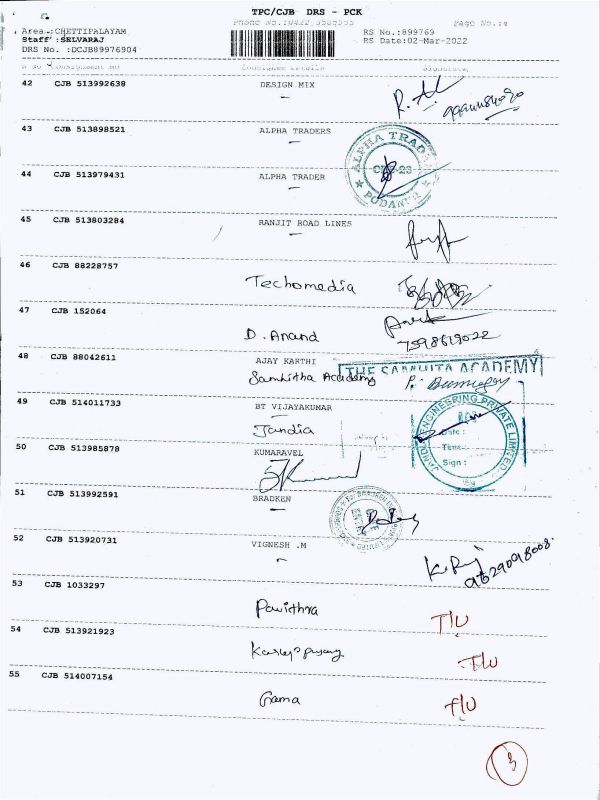 TPC/CJB DRS - PCK
Area :CHETTIPALAYAM
Staff :SELVARAJ
DRS No. :DCJB89976904
RS No.:899769
RS Date:02-Mar-2022
Page No.:4
42 CJB 513992638 DESIGN MIX
43 CJB 513898521 ALPHA TRADERS
ALPHA TRADE
PODANUR
44 CJB 513979431 ALPHA TRADER
45 CJB 513803284 RANJIT ROAD LINES
46 CJB 88228757
Techomedia
47 CJB 152064
D. Anand
7598619022
48 CJB 88042611 AJAY KARTHI
THE SAMHITA ACADEMY
Samhitha Academy
49 CJB 514011733 BT VIJAYAKUMAR
Jandia
ENGINEERING PRIVATE LIMITED
Date :
Time :
Sign :
50 CJB 513985878 KUMARAVEL
51 CJB 513992591 BRADKEN
52 CJB 513920731 VIGNESH .M
9629098008
53 CJB 1033297
Pavithra T/U
54 CJB 513921923
T/U
55 CJB 514007154
Grama T/U
3